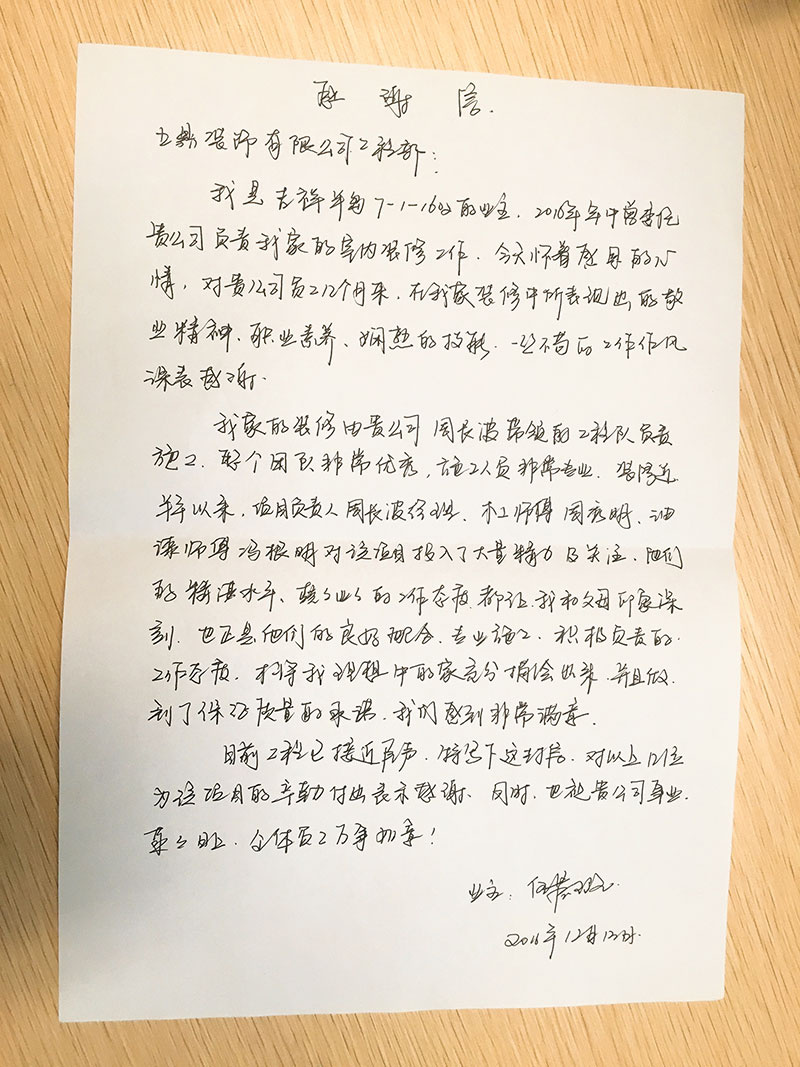 感谢信.
立鼎装饰有限公司工程部:
我是吉祥半岛7-1-1601的业主. 2016年年中曾委托
贵公司负责我家的室内装修工作. 今天怀着感恩的心
情, 对贵公司员工几个月来, 在我家装修中所表现出的敬
业精神、职业素养、娴熟的技能、一丝不苟的工作作风
深表感谢.
我家的装修由贵公司周长波带领的工程队负责
施工. 整个团队非常优秀, 施工人员非常专业. 装修近
半年以来, 项目负责人周长波经理、木工师傅周秀明、油
漆师傅冯根明对该项目投入了大量精力及关注. 他们
的精湛水平、兢兢业业的工作态度都让我和父母印象深
刻. 也正是他们的良好配合、专业施工、积极负责的
工作态度. 才将我理想中的家充分描绘出来. 并且做
到了保证质量的承诺. 我们感到非常满意.
目前工程已接近尾声. 特写下这封信. 对以上几位
为该项目的辛勤付出表示感谢. 同时, 也祝贵公司事业
蒸蒸日上. 全体员工万事如意!
业主:
2016年12月